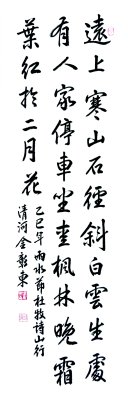 遠上寒山石徑斜白雲生處
有人家停車坐愛楓林晚霜
葉紅於二月花
乙巳年雨水節杜牧詩山行
清河金彰東